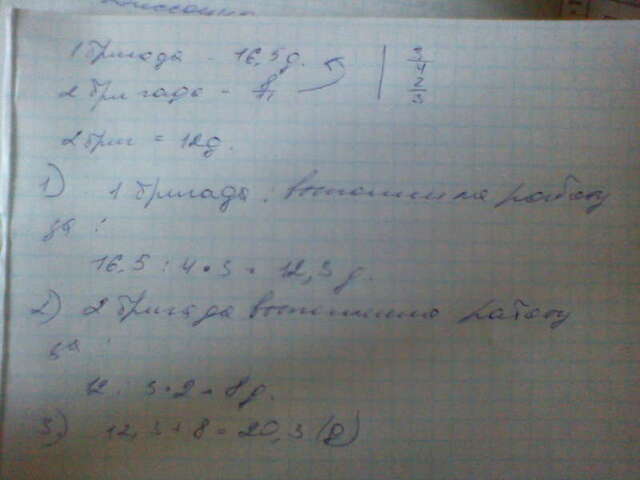 1 бригада - 16,5 д. | 3/4
2 бригада - 8/11 | 2/3
2 бриг = 12 д.
1) 1 бригада выполнила работу
за :
16,5 : 4 • 3 = 12,3 д.
2) 2 бригада выполнила работу
за :
12 : 3 • 2 = 8 д.
3) 12,3 + 8 = 20,3 (д)